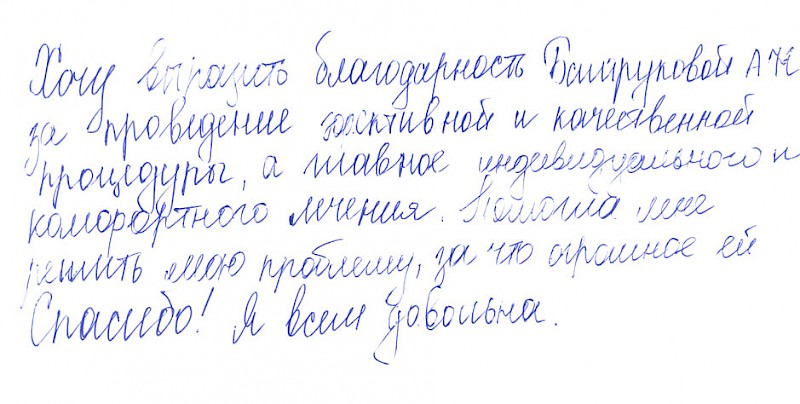 Хочу выразить благодарность
за проведение эффективной и качественной
процедуры, а главное индивидуального и
комфортного лечения. Помогла мне
решить мою проблему, за что огромное ей
Спасибо! Я всем довольна.